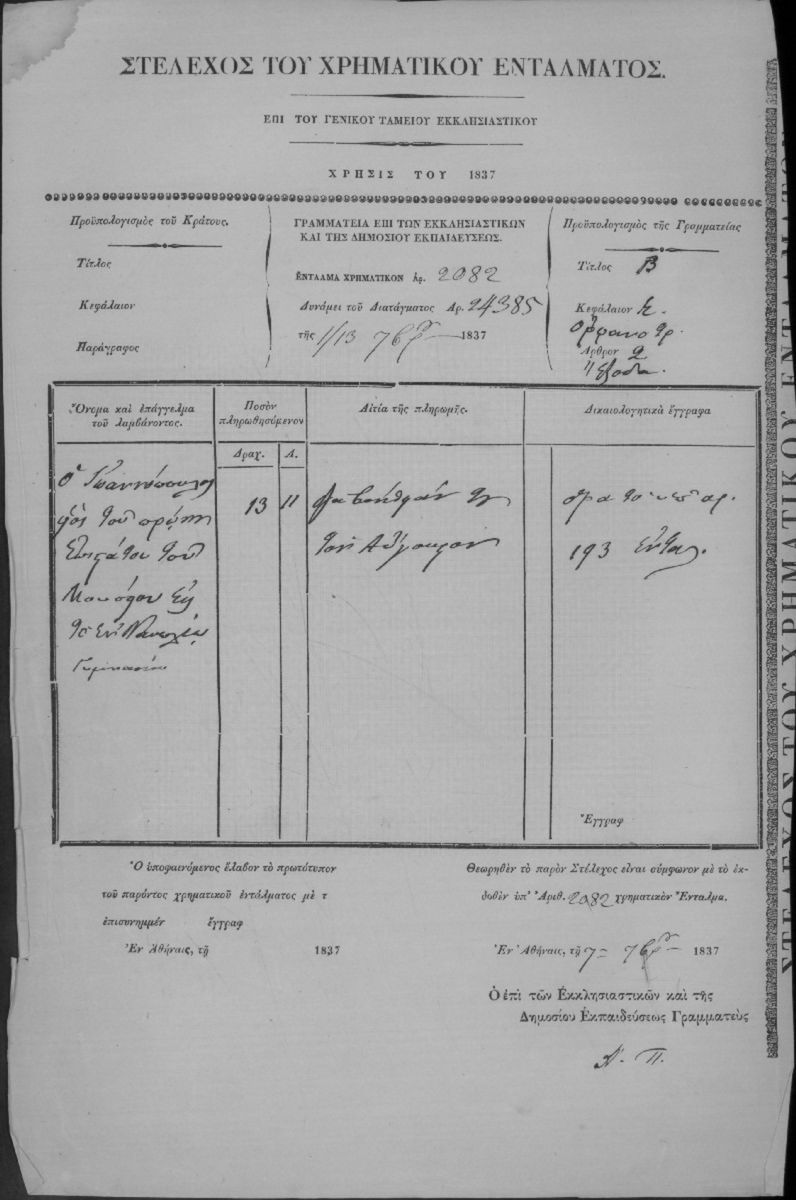 ΣΤΕΛΕΧΟΣ ΤΟΥ ΧΡΗΜΑΤΙΚΟΥ ΕΝΤΑΛΜΑΤΟΣ.
ΕΠΙ ΤΟΥ ΓΕΝΙΚΟΥ ΤΑΜΕΙΟΥ ΕΚΚΛΗΣΙΑΣΤΙΚΟΥ
ΧΡΗΣΙΣ ΤΟΥ 1837
Προϋπολογισμὸς τοῦ Κράτους.
Τίτλος
Κεφάλαιον
Παράγραφος
ΓΡΑΜΜΑΤΕΙΑ ΕΠΙ ΤΩΝ ΕΚΚΛΗΣΙΑΣΤΙΚΩΝ
ΚΑΙ ΤΗΣ ΔΗΜΟΣΙΟΥ ΕΚΠΑΙΔΕΥΣΕΩΣ.
ΕΝΤΑΛΜΑ ΧΡΗΜΑΤΙΚΟΝ Ἀρ. 2082
Δυνάμει τοῦ Διατάγματος Αρ. 24385
τῆς 1/13 7βρ 1837
Προϋπολογισμὸς τῆς Γραμματείας
Τίτλος Β
Κεφάλαιον
Ὀρφανοτρ.
Αρθρον 2
Ἔξοδα.
Ὄνομα καὶ ἐπάγγελμα
τοῦ λαμβάνοντος.
Ποσὸν
πληρωθησόμενον
Δραχ. Λ.
Αἰτία τῆς πληρωμῆς.
Δικαιολογητικὰ ἔγγραφα
ὁ
τοῦ
τοῦ
13 11
τὸν Αὔγουστον
ὅρα τὸ ὑπ' αρ.
193 Ενταλ.
Ἔγγραφ
Ὁ ὑποφαινόμενος ἔλαβον τὸ πρωτότυπον
τοῦ παρόντος χρηματικοῦ ἐντάλματος μὲ τ
ἐπισυνημμέν ἔγγραφ
Ἐν Ἀθήναις, τῇ 1837
Θεωρηθὲν τὸ παρὸν Στέλεχος εἶναι σύμφωνον μὲ τὸ ἐκ-
δοθὲν ὑπ' Ἀριθ. 2082 χρηματικὸν Ἔνταλμα.
Ἐν Ἀθήναις, τῇ 7 7βρ 1837
Ὁ ἐπὶ τῶν Ἐκκλησιαστικῶν καὶ τῆς
Δημοσίου Ἐκπαιδεύσεως Γραμματεὺς
Α. Π.
ΣΤΕΛΕΧΟΣ ΤΟΥ ΧΡΗΜΑΤΙΚΟΥ ΕΝΤΑΛΜ